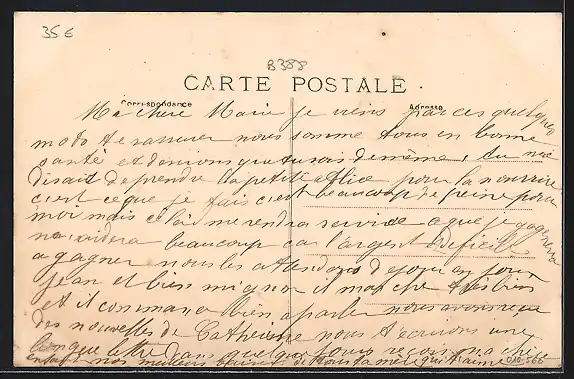 35 €
B388
CARTE POSTALE
Correspondance Adresse
Ma chère Marie je viens par ces quelques
mots te rassurer nous somme tous en bonne
santé et désirons que tu sois de même, tu me
disait de prendre la petite alice pour la nourrire
c'est ce que je fais c'est beaucoup de peine pour
moi mais cela me rendra service ce que je gagnerai
nous aidera beaucoup car l'argent difficile
a gagner nous les attendons de jour en jour
jean et bien mignon il marche très bien
et il commance bien a parler nous avons reçu
des nouvelles de Catherine nous t'écrirons une
longue lettre dans quelques jours reçois ma chère
enfant nos meilleurs baisers de tous ta mère qui t'aime